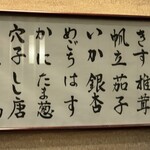 きす 椎茸
帆立 茄子
いか 銀杏
めごち はす
かに たま葱
穴子 しし唐